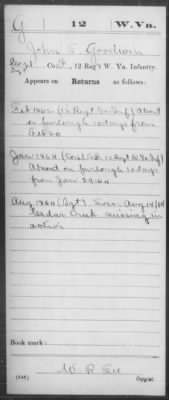 G 12 W. Va.
John S. Goodwin
Sergt, Co. , 12 Reg't W. Va. Infantry.
Appears on Returns as follows:
Feb 1863 (12 Regt Va Inf) Absent
on furlough 10 days from
Feb 20
Jan 1864 (12 Regt W Va Inf)
Absent on furlough 10 days
from Jan 29.64
Aug 1864 (Sgt) Loss: Aug 14/64
Cedar Creek missing in
action
Book mark:
(546) Copyist.